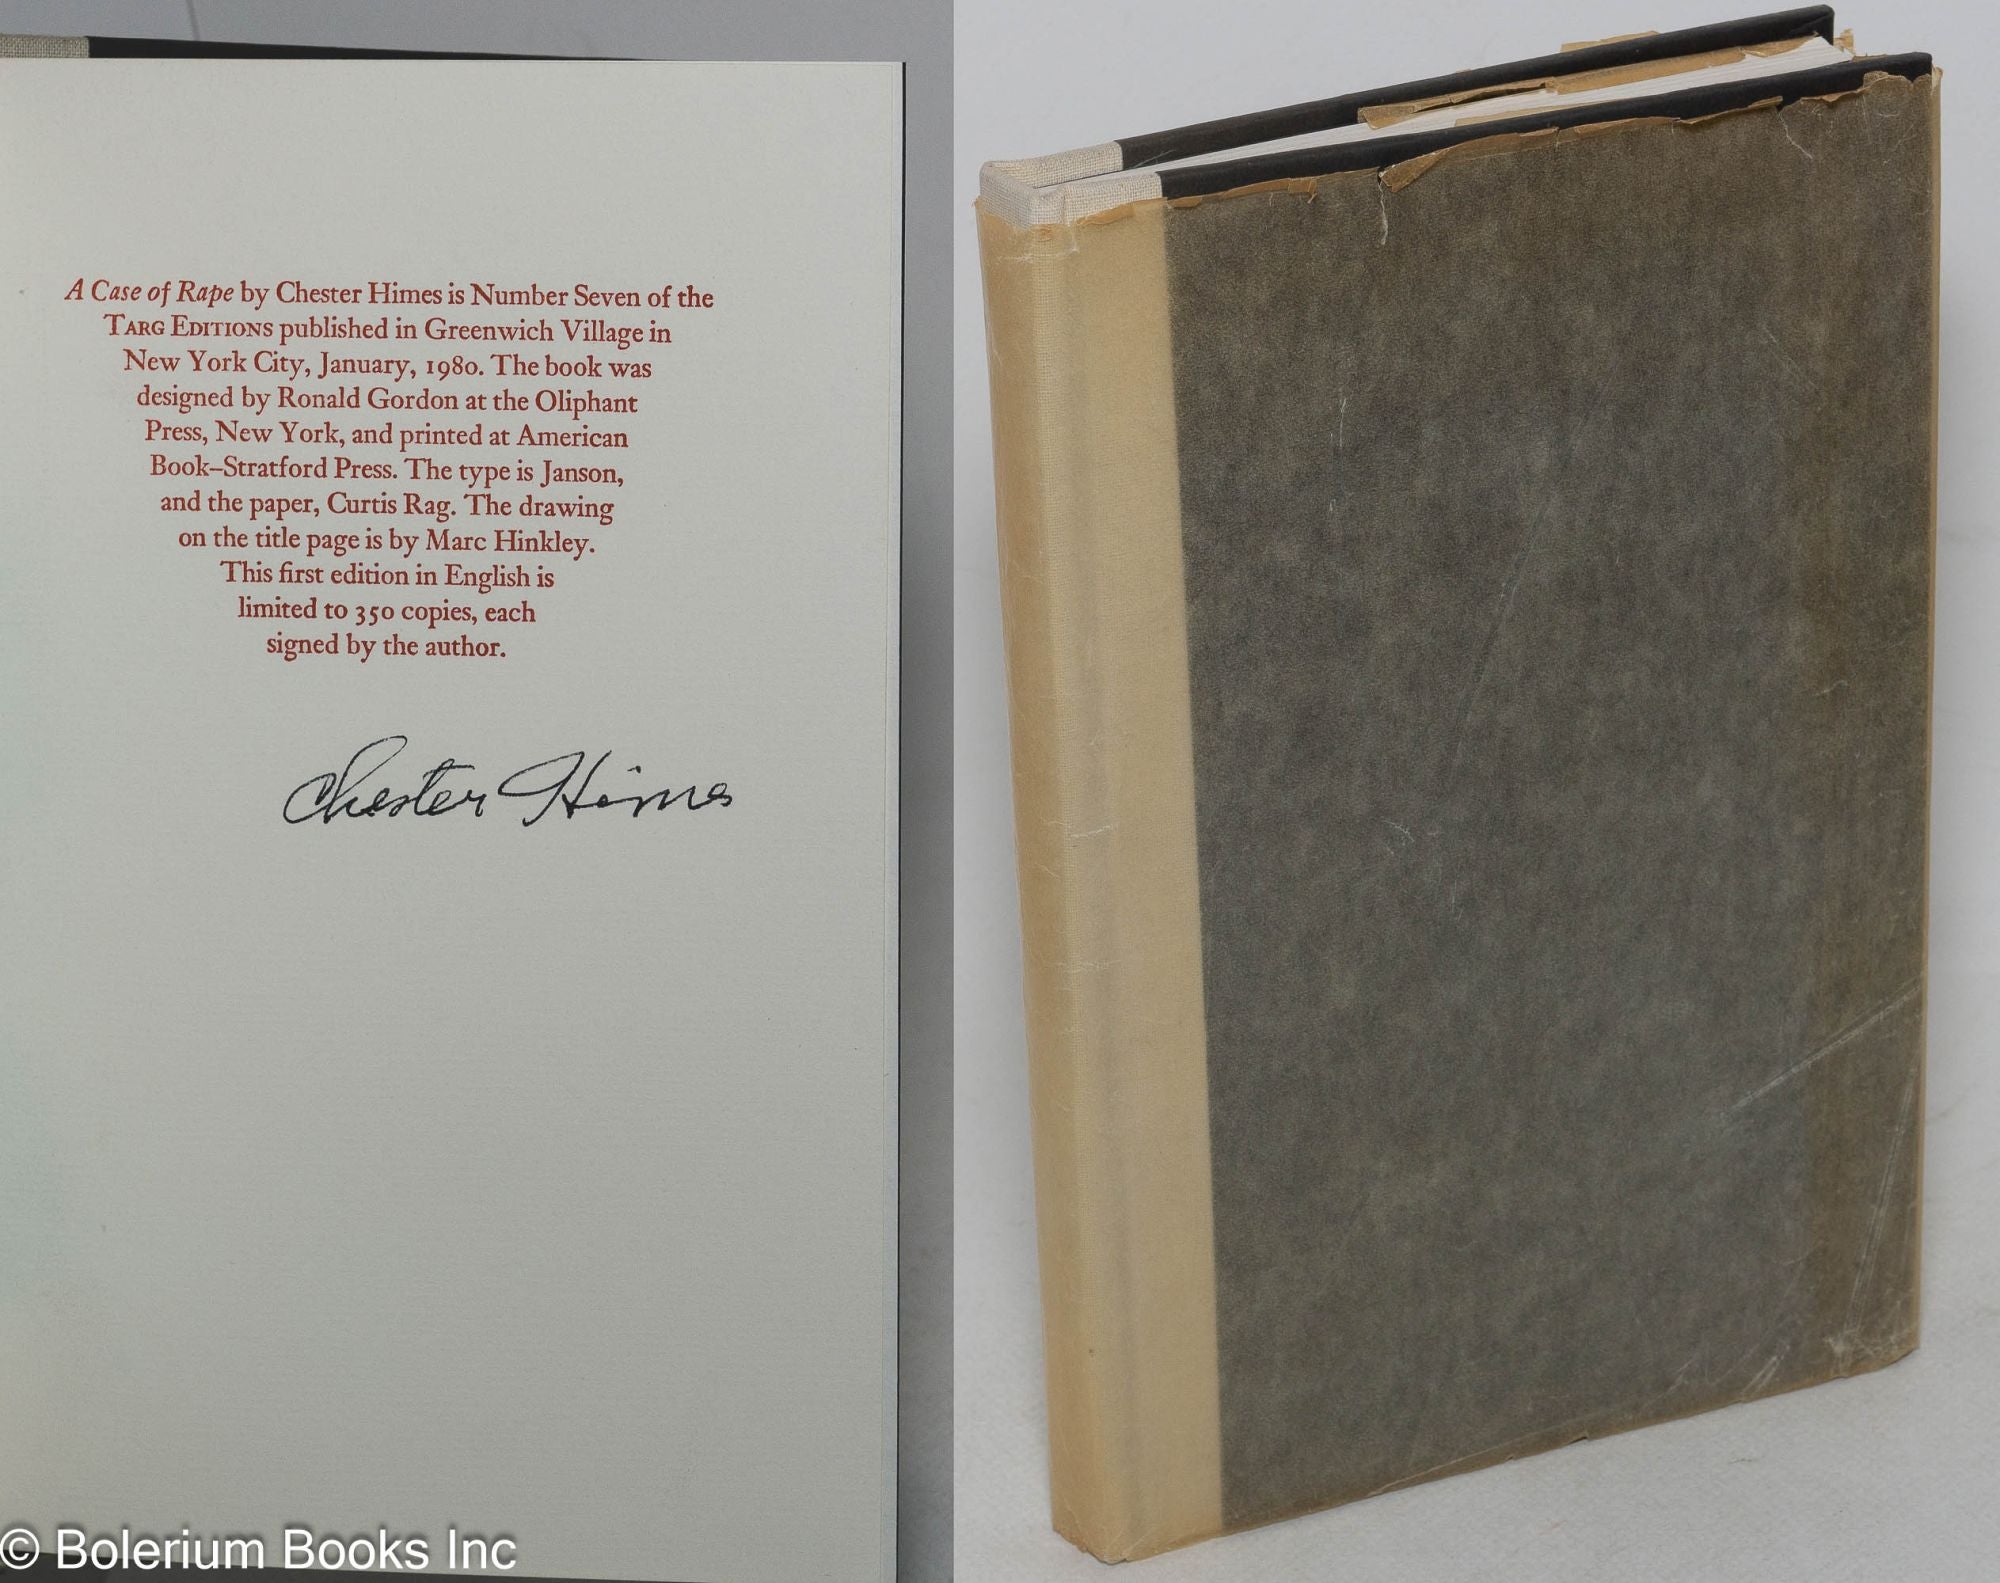 A Case of Rape by Chester Himes is Number Seven of the
TARG EDITIONS published in Greenwich Village in
New York City, January, 1980. The book was
designed by Ronald Gordon at the Oliphant
Press, New York, and printed at American
Book–Stratford Press. The type is Janson,
and the paper, Curtis Rag. The drawing
on the title page is by Marc Hinkley.
This first edition in English is
limited to 350 copies, each
signed by the author.
Chester Himes
© Bolerium Books Inc